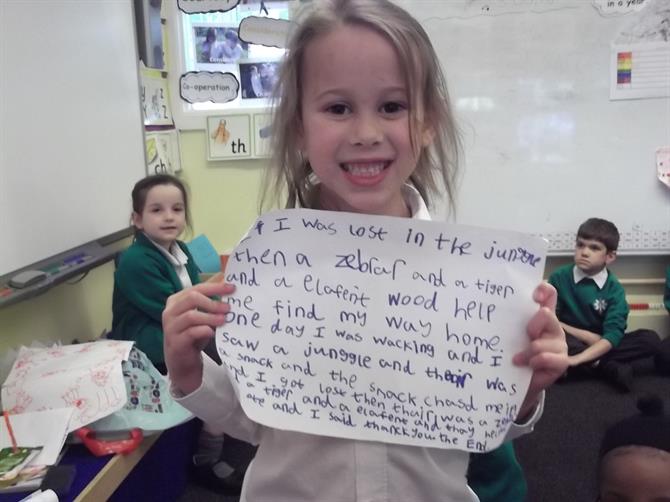 Co-operation
in a year
th
ch
z
z
If I was Lost in the junggle
then a zebrar and a tiger
and a elafent wood help
me find my way home.
one day I was wacking and I
saw a junggle and thear was
a snack and the snack chasd me in
and I got lost then thair was a
a tiger and a elafent and thay
and I said thankk you the End